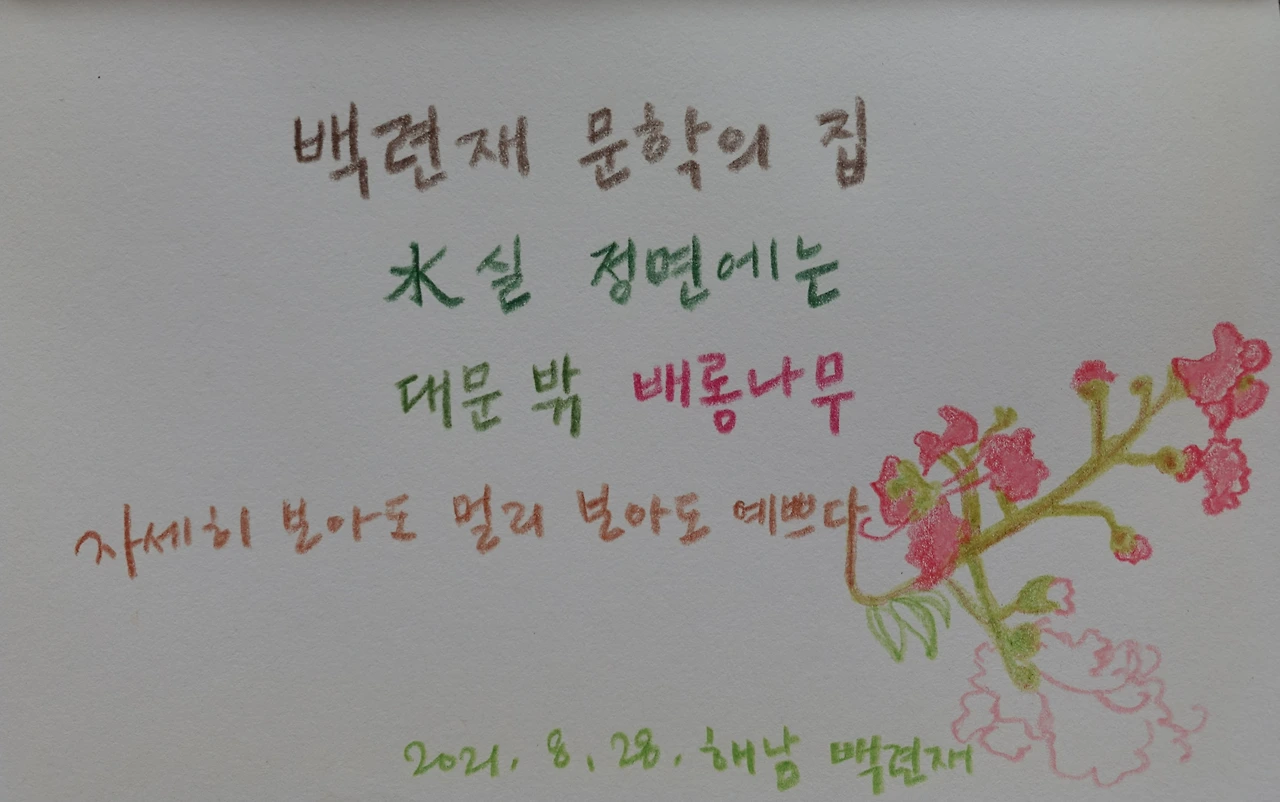 백련재 문학의 집
水실 정면에는
대문 밖 배롱나무
자세히 보아도 멀리 보아도 예쁘다
2021. 8. 28. 해남 백련재